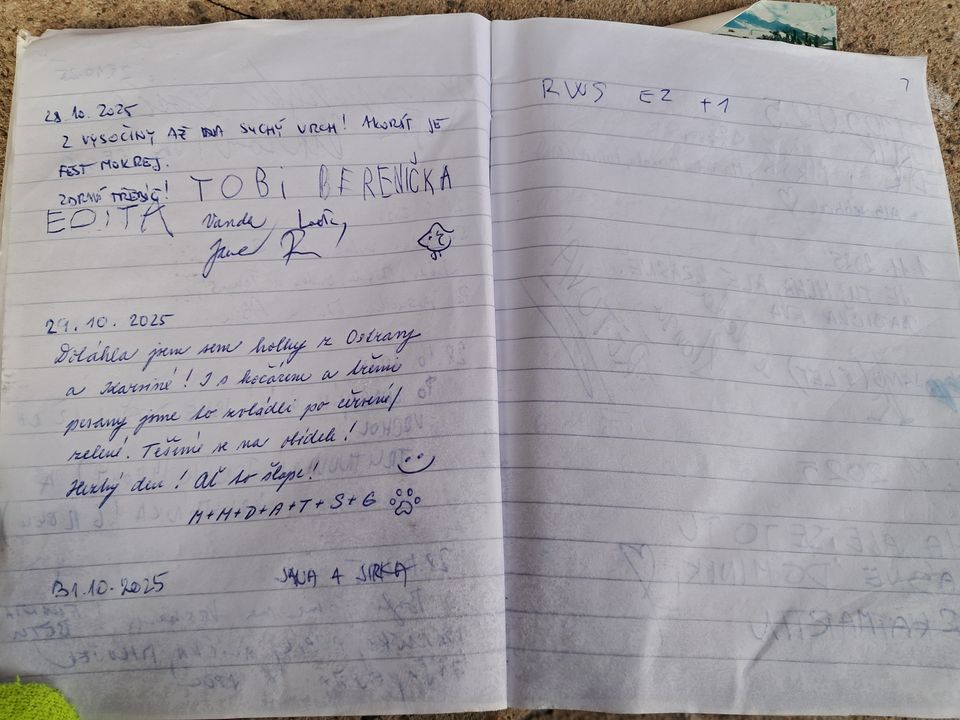 28.10.2025
Z VYSOČINY AŽ NA SUCHÝ VRCH! AKORÁT JE
FEST MOKREJ.
ZDRAVÍ TŘEBÍČ!
TOBI BERENIČKA
EDITA Vanda
29.10.2025
Dotáhla jsem sem holky z Ostravy
a Karviné! I s kočárem a třemi
pesany jsme to zvládli po červené/
zelené. Těšíme se na obídek!
Hezký den! Ať to šlape!
M+M+D+A+T+S+G
31.10.2025 JANA A JIRKA
RWS EZ +1